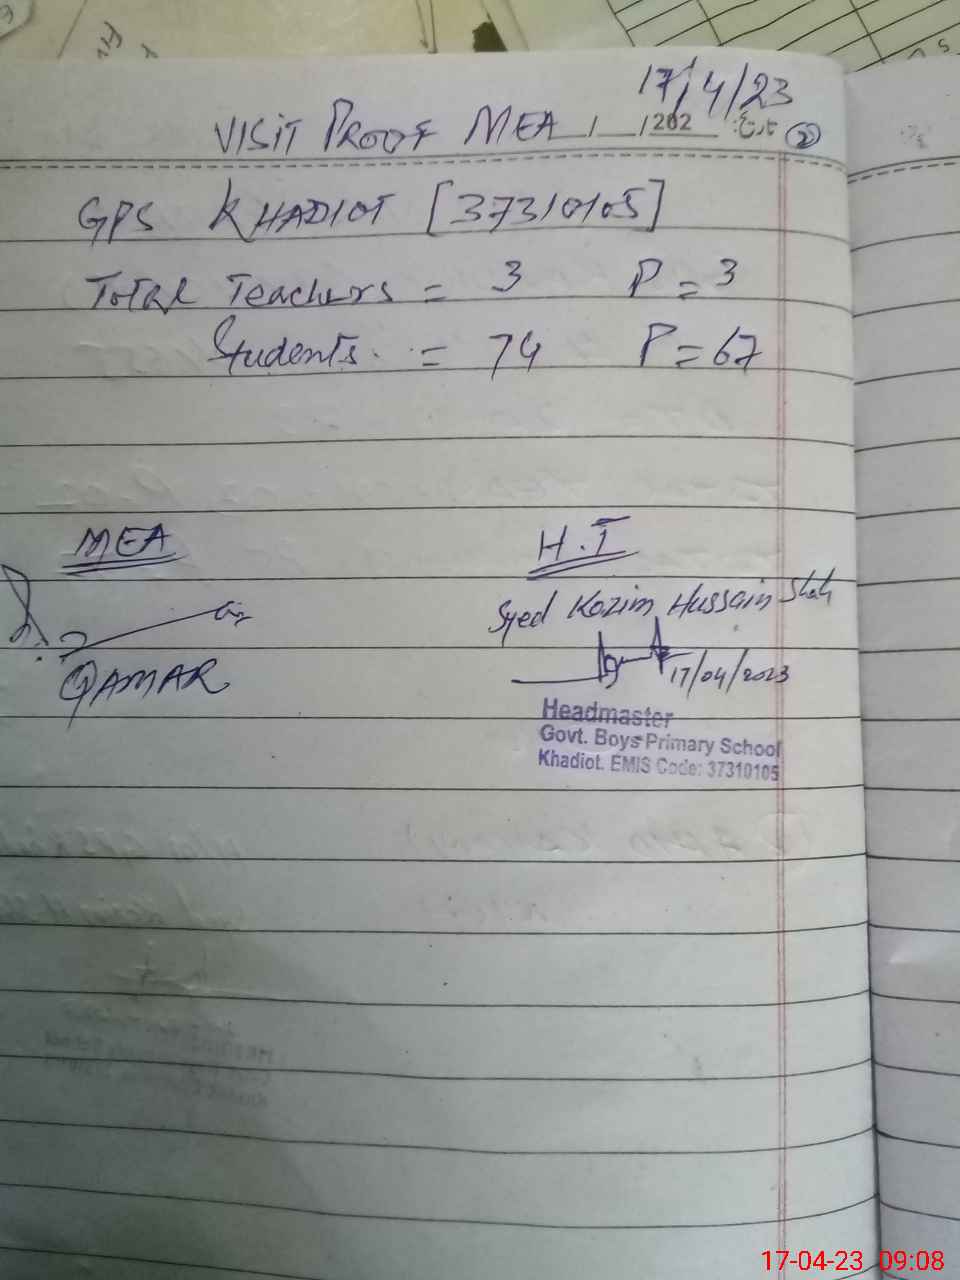 17/4/23
VISIT PROOF MEA / /202 تاریخ: 2
GPS KHADIOT [37310105]
Total Teachers = 3 P = 3
Students = 74 P = 67
MEA
H.T
Syed Kazim Hussain Shah
QAMAR
17/04/2023
Headmaster
Govt. Boys Primary School
Khadiot. EMIS Code: 37310105
17-04-23 09:08